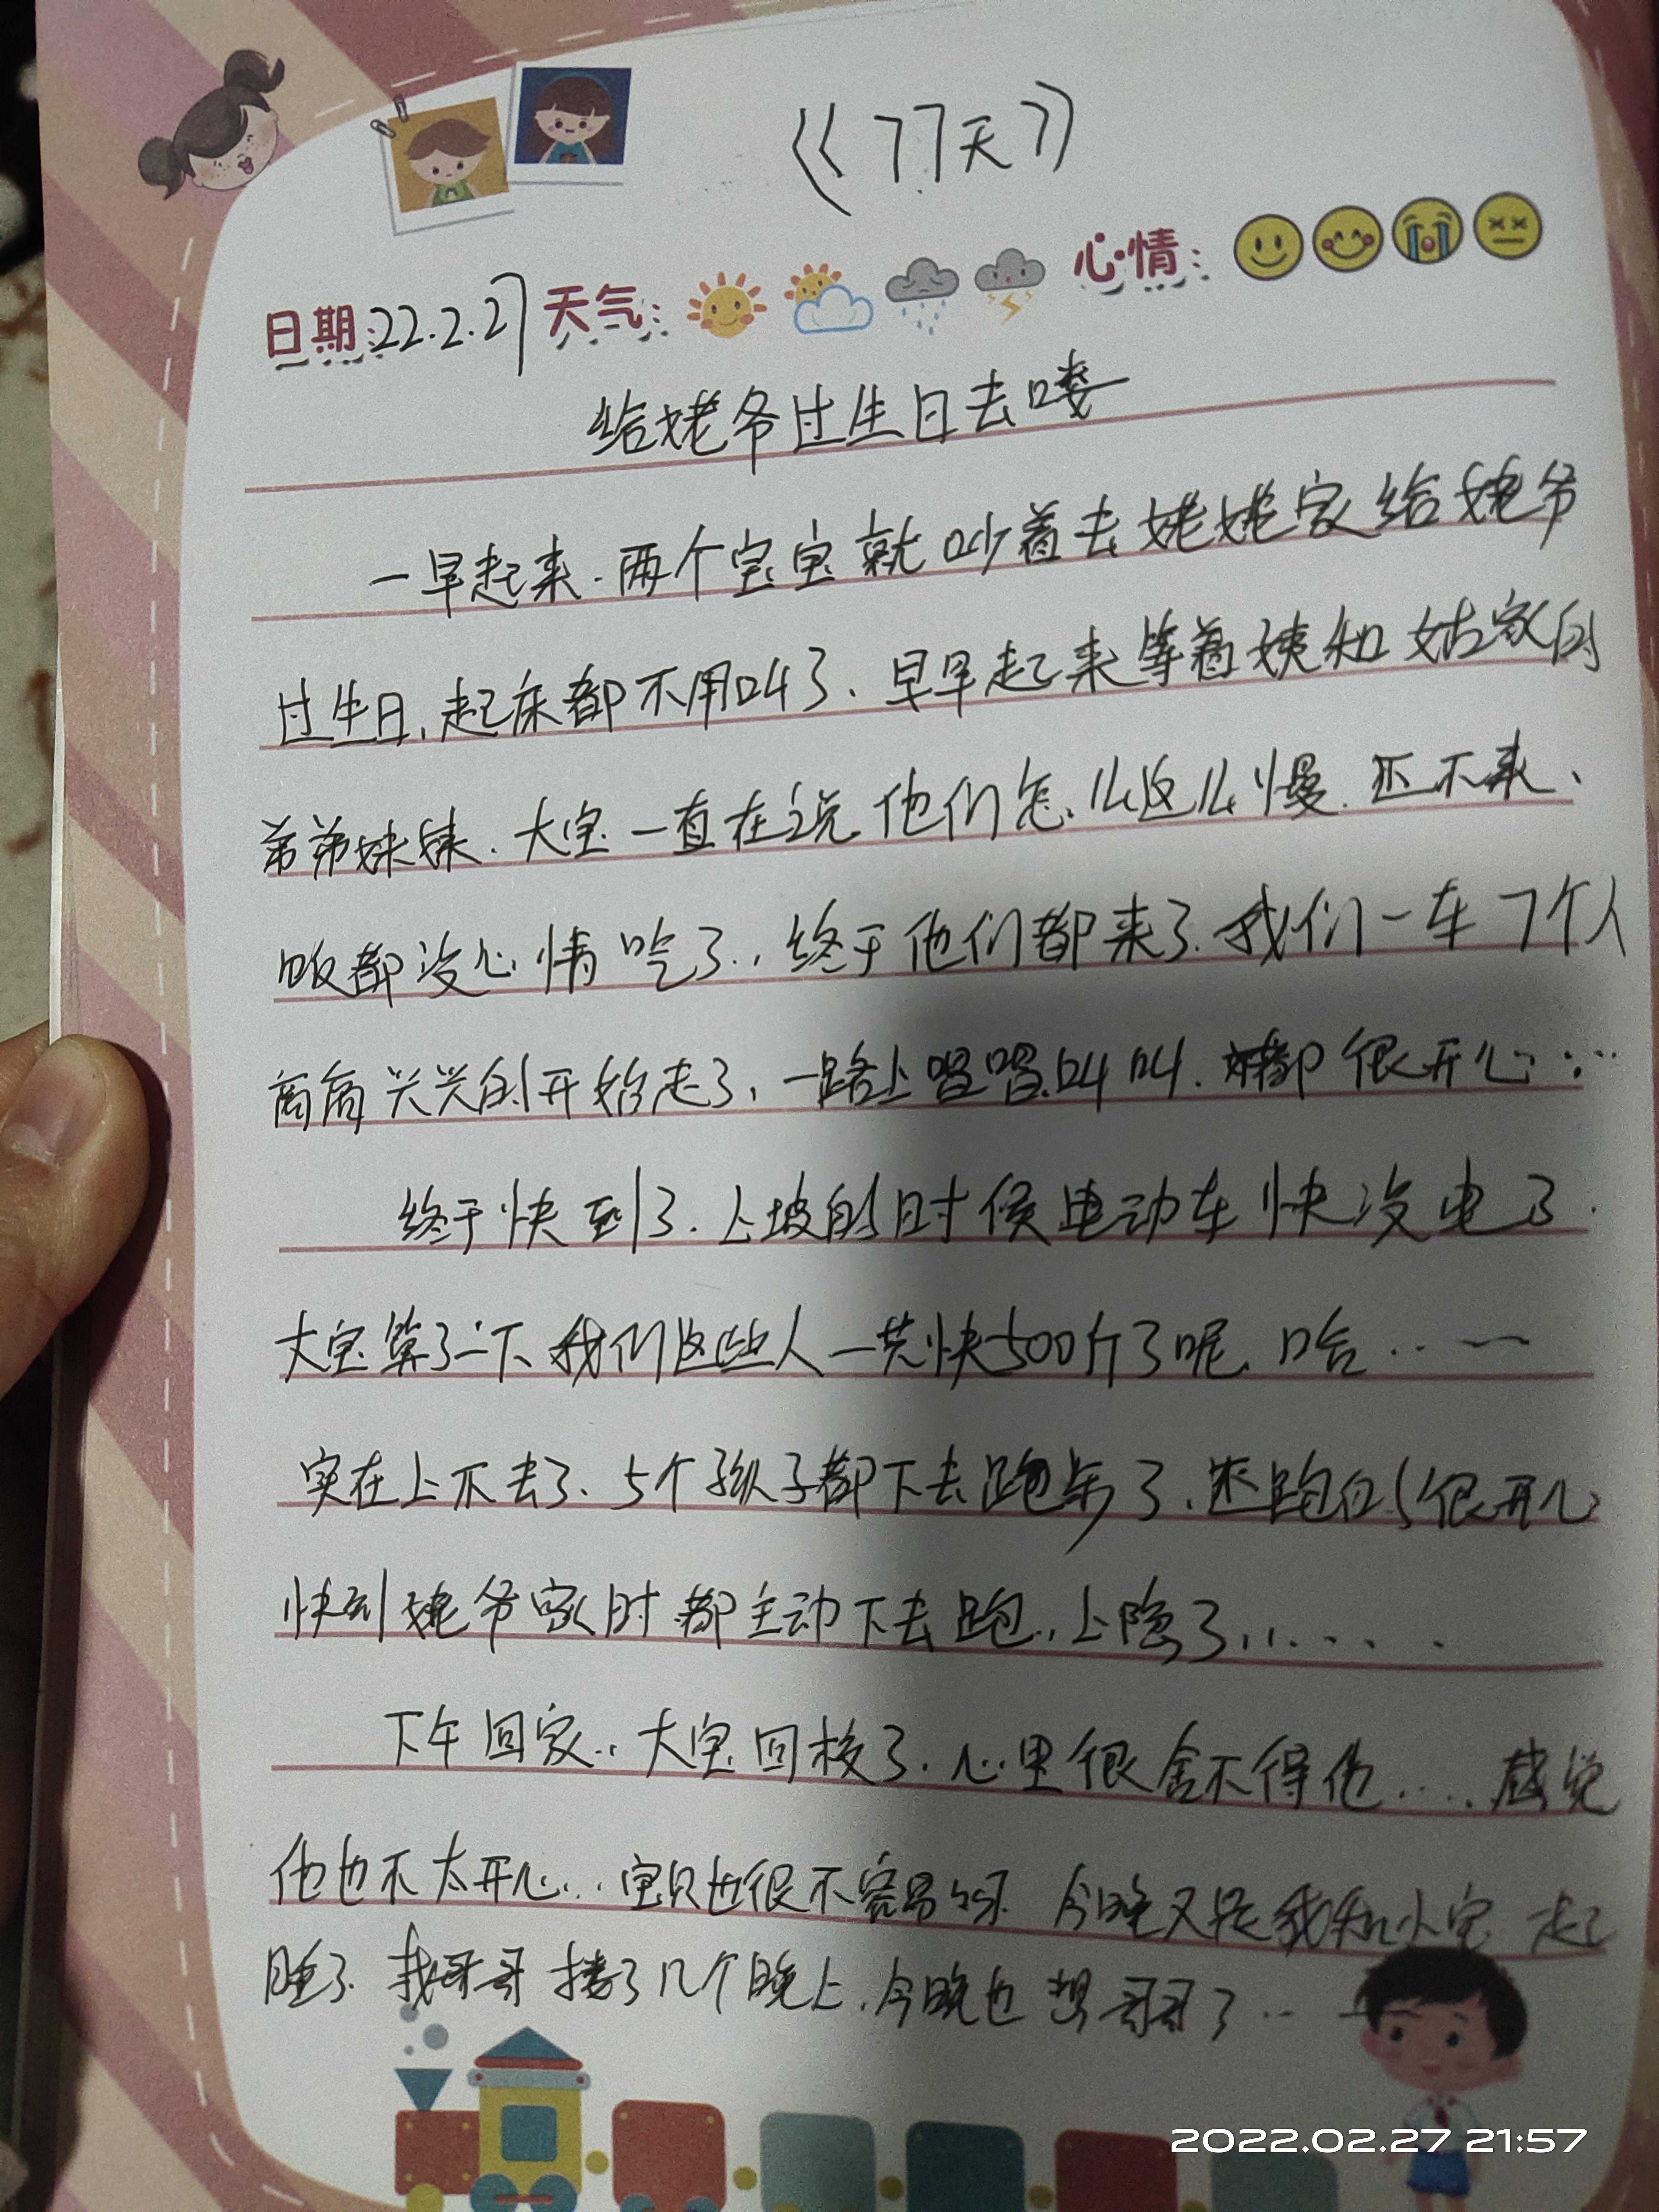 《77天》
日期:22.2.27 天气: 心情:
给姥爷过生日去喽
一早起来.两个宝宝就吵着去姥姥家给姥爷
过生日,起床都不用叫了、早早起来等着姨和姑家的
弟弟妹妹.大宝一直在说他们怎么这么慢.还不来、
饭都没心情吃了..终于他们都来了.我们一车7个人
高高兴兴的开始走了,一路上唱唱叫叫.都很开心...
终于快到了.上坡的时候电动车快没电了.
大宝算了一下我们这些人一共快500斤了呢.哈..一
实在上不去了、5个孩子都下去跑步了.还跑的很开心
快到姥爷家时都主动下去跑.上隐了.......
下午回家..大宝回校了.心里很舍不得他....感觉
他也不太开心...宝贝也很不容易呀.今晚又是我和小宝一起
睡了.我哥哥搂了几个晚上.今晚也想哥哥了..
2022.02.27 21:57